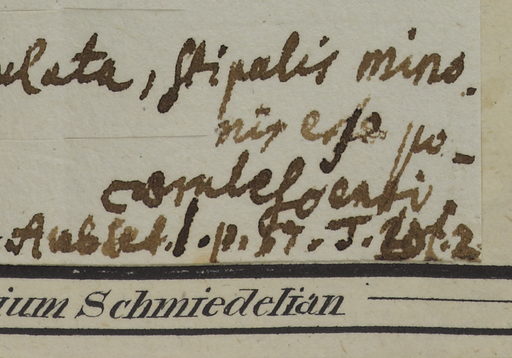 ulata, stipulis mino.
nir esse po-
cærulescenti.
Aublet. 1. p. 57. T. 201. 2.
ium Schmiedelian